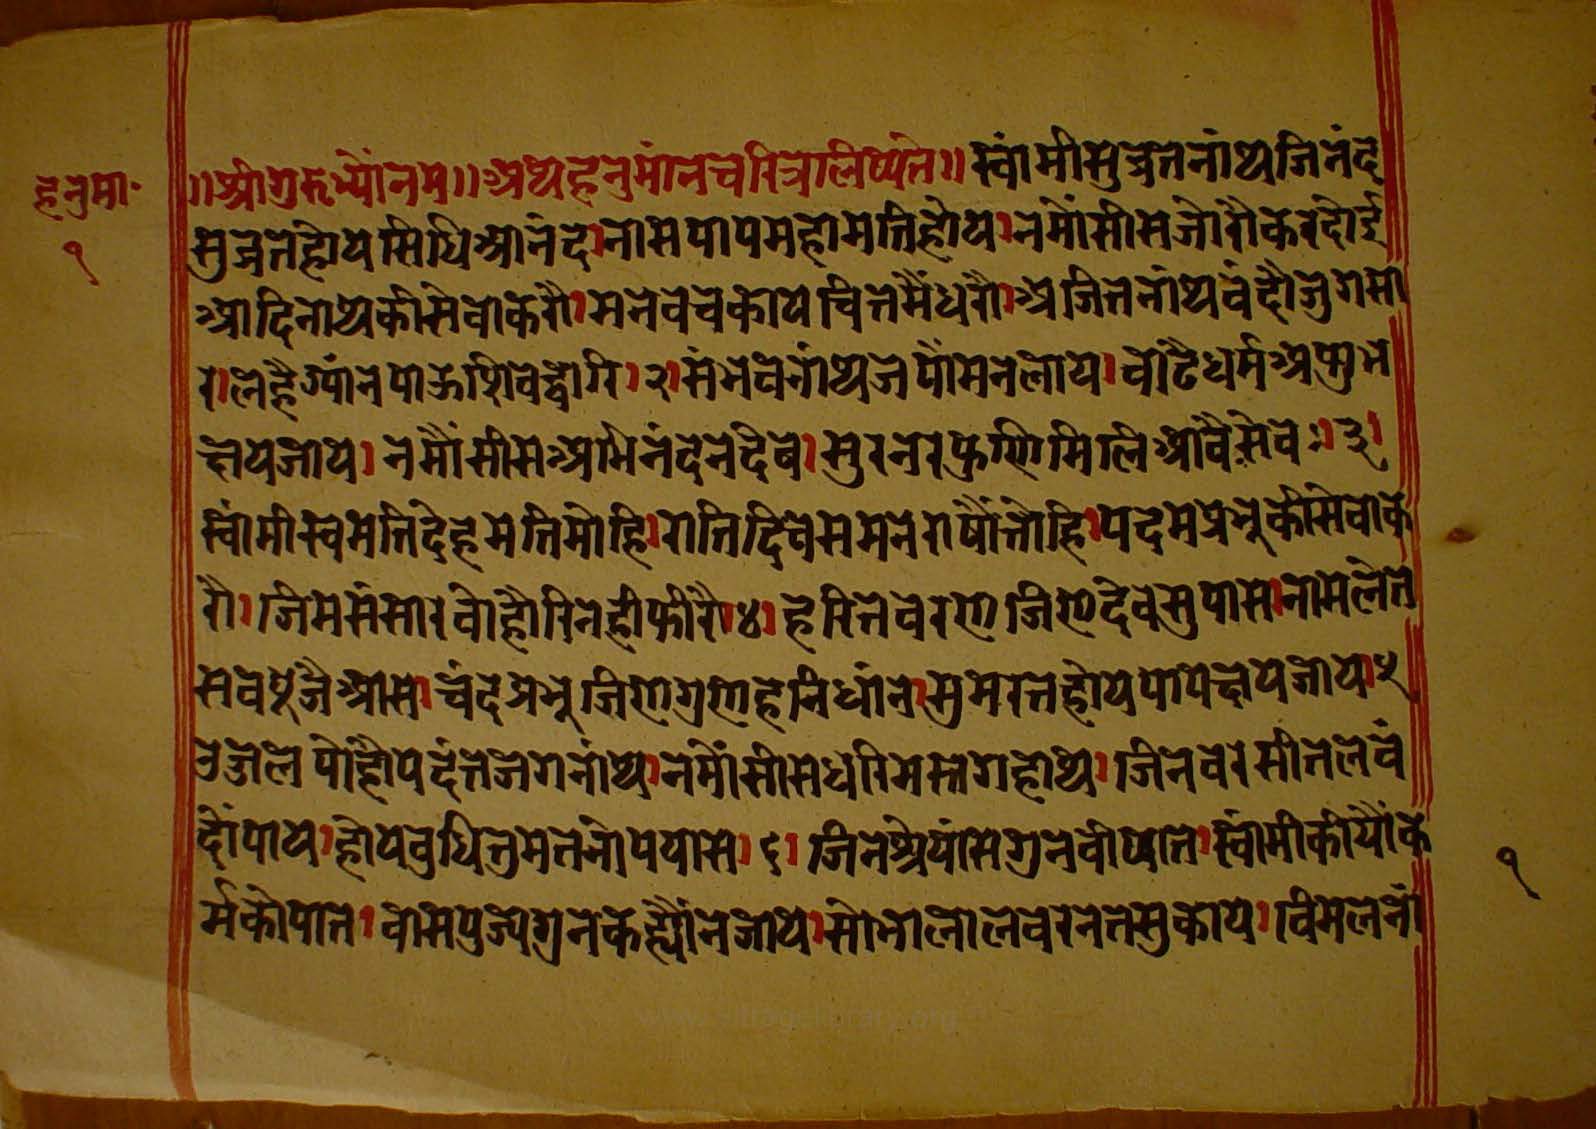 हनुमा॰
१
॥श्रीगुरुभ्योंनम॥अथहनुमांनचरित्रलिष्यते॥स्वांमीसुव्रतनांथजिनंद
सुव्रतहोयसिधिआनंद।नासपापमहामतिहोय।नमौंसीसजोरौकरदोई
आदिनाथकीसेवाकरौ।मनवचकायचित्तमैंधरौ।अजितनांथवंदौजुगसा
र।लहैग्यांनपाऊशिवद्वारि।२।संभवनांथजपौंमनलाय।वांढैधर्मअसुभ
क्षयजाय।नमौंसीसअभिनंदनदेव।सुरनरफुणिमिलिआवैसेव।३।
स्वांमीस्वमतिदेहमतिमोहि।रातिदिवसमनराषौंतोहि।पदमप्रभूकीसेवाक
रौ।जिमसंसारवोहौरिनहीफीरौ४।हरितवरणजिणदेवसुपास।नामलेत
सवपूजैआस।चंदप्रभूजिणगुणहनिधांन।सुमरतहोयपापक्षयजाय।५
उजलपोहौपदंतजगनांथ।नमौंसीसधरिमस्तगहाथ।जिनवरसीतलवं
दौंपाय।होयवुधितुमतनोपयास।६।जिनश्रेयांसगुनवीष्यात।स्वांमीकीयौंक
र्मकोघात।वासपुज्यगुनकह्यौंनजाय।सोभालालवरनतसुकाय।विमलनां
१